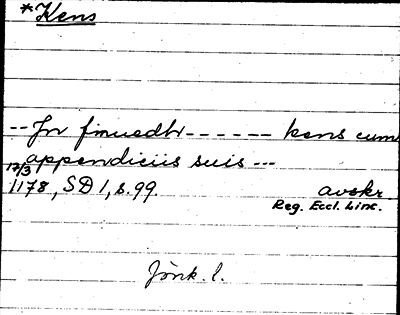 *Kens
-- In finuedhr ------ kens cum
appendiciis suis ---
12/3
1178, SD 1, s. 99. avskr.
Reg. Eccl. Linc.
Jönk. l.